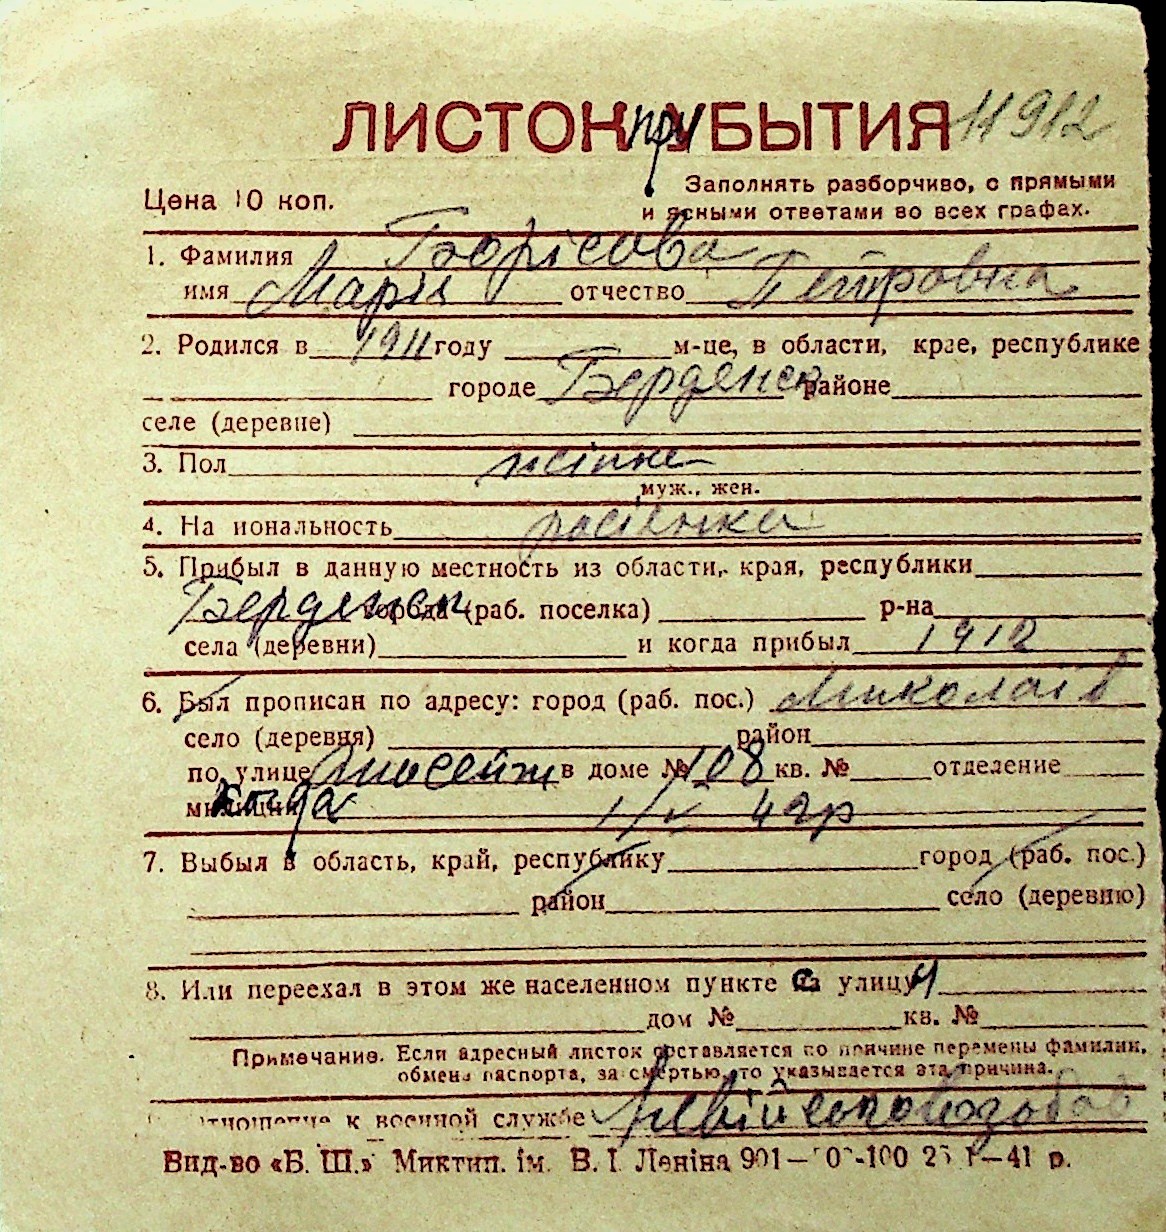 ЛИСТОК при УБЫТИЯ 11912
Цена 10 коп.
Заполнять разборчиво, с прямыми
и ясными ответами во всех графах.
1. Фамилия Борісова
имя Марія отчество Петровна
2. Родился в 1911 году м-це, в области, крае, республике
городе Бердянск районе
селе (деревне)
3. Пол жіноч
муж., жен.
4. На иональность росіянка
5. Прибыл в данную местность из области, края, республики
Бердянск города (раб. поселка) р-на
села (деревни) и когда прибыл 1912
6. Был прописан по адресу: город (раб. пос.) Миколаїв
село (деревня) район
по улице в доме № 108 кв. № отделение
милиции Когда 1/V 42р
7. Выбыл в область, край, республику город (раб. пос.)
район село (деревню)
8. Или переехал в этом же населенном пункте с улицы
дом № кв. №
Примечание. Если адресный листок составляется по причине перемены фамилии,
обмена паспорта, за смертью, то указывается эта причина.
отношение к военной службе Невійськовозобов
Вид-во «Б. Ш.» Миктип. ім. В. І. Леніна 901— 0 -100 2 І—41 р.